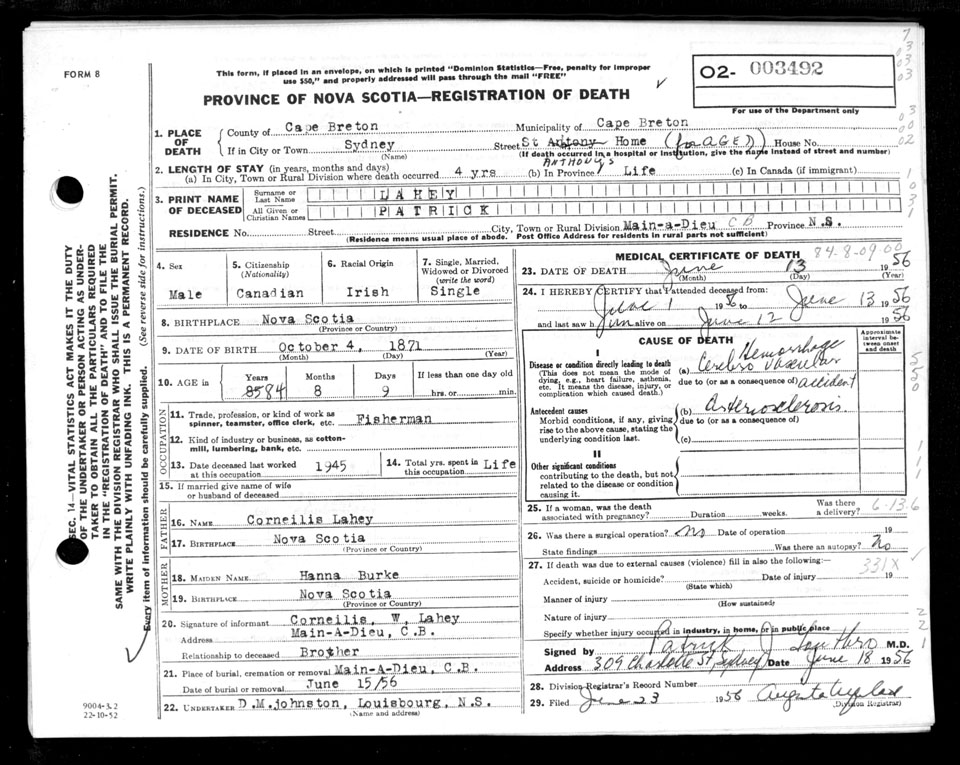 FORM 8
This form, if placed in an envelope, on which is printed "Dominion Statistics—Free, penalty for improper
use $50," and properly addressed will pass through the mail "FREE"
PROVINCE OF NOVA SCOTIA—REGISTRATION OF DEATH
02- 003492
For use of the Department only
1. PLACE OF DEATH
County of Cape Breton Municipality of Cape Breton
If in City or Town Sydney Street St Antony Home (for AGED) House No.
ANTHONY'S
(Name) (If death occurred in a hospital or institution, give the name instead of street and number)
2. LENGTH OF STAY (in years, months and days)
(a) In City, Town or Rural Division where death occurred 4 yrs (b) In Province Life (c) In Canada (if immigrant)
3. PRINT NAME OF DECEASED
Surname or Last Name LAHEY
All Given or Christian Names PATRICK
RESIDENCE No. Street City, Town or Rural Division Main-a-Dieu CB Province N.S.
(Residence means usual place of abode. Post Office Address for residents in rural parts not sufficient)
4. Sex Male
5. Citizenship (Nationality) Canadian
6. Racial Origin Irish
7. Single, Married, Widowed or Divorced (write the word) Single
8. BIRTHPLACE Nova Scotia
(Province or Country)
9. DATE OF BIRTH October 4, 1871
(Month) (Day) (Year)
10. AGE in Years Months Days If less than one day old
8584 8 9 hrs. or min.
OCCUPATION
11. Trade, profession, or kind of work as
spinner, teamster, office clerk, etc. Fisherman
12. Kind of industry or business, as cotton-
mill, lumbering, bank, etc.
13. Date deceased last worked at this occupation 1945
14. Total yrs. spent in this occupation Life
15. If married give name of wife
or husband of deceased
FATHER
16. NAME Corneilis Lahey
17. BIRTHPLACE Nova Scotia
(Province or Country)
MOTHER
18. MAIDEN NAME Hanna Burke
19. BIRTHPLACE Nova Scotia
(Province or Country)
20. Signature of informant Corneilis, W, Lahey
Address Main-A-Dieu, C.B.
Relationship to deceased Brother
21. Place of burial, cremation or removal Main-A-Dieu, C.B.
Date of burial or removal June 15/56
22. UNDERTAKER D.M.johnston, Louisbourg, N.S.
(Name and address)
MEDICAL CERTIFICATE OF DEATH
84-8-09-00
23. DATE OF DEATH June 13 1956
(Month) (Day) (Year)
24. I HEREBY CERTIFY that I attended deceased from:
June 1 1956 to June 13 1956
and last saw him alive on June 12 1956
CAUSE OF DEATH
Approximate interval between onset and death
I
Disease or condition directly leading to death
(This does not mean the mode of dying, e.g., heart failure, asthenia, etc. It means the disease, injury, or complication which caused death.)
Hemorrhage
(a) Cerebro vascular
due to (or as a consequence of) accident
Antecedent causes
Morbid conditions, if any, giving rise to the above cause, stating the underlying condition last.
(b) Arteriosclerosis
due to (or as a consequence of)
(c)
II
Other significant conditions
contributing to the death, but not related to the disease or condition causing it.
25. If a woman, was the death associated with pregnancy? Duration weeks. Was there a delivery?
6-13-6
26. Was there a surgical operation? No Date of operation 19
State findings Was there an autopsy? No
27. If death was due to external causes (violence) fill in also the following:—
331X
Accident, suicide or homicide? Date of injury 19
(State which)
Manner of injury
(How sustained)
Nature of injury
Specify whether injury occurred in industry, in home, or in public place
Signed by Patrick M.D.
Address 309 Charlotte St, Sydney Date June 18 1956
28. Division Registrar's Record Number
29. Filed June 23 1956
(Division Registrar)
SEC. 14—VITAL STATISTICS ACT MAKES IT THE DUTY
OF THE UNDERTAKER OR PERSON ACTING AS UNDER-
TAKER TO OBTAIN ALL THE PARTICULARS REQUIRED
IN THE "REGISTRATION OF DEATH" AND TO FILE THE
SAME WITH THE DIVISION REGISTRAR WHO SHALL ISSUE THE BURIAL PERMIT.
WRITE PLAINLY WITH UNFADING INK. THIS IS A PERMANENT RECORD.
Every item of information should be carefully supplied. (See reverse side for instructions.)
9004-3.2
22-10-52